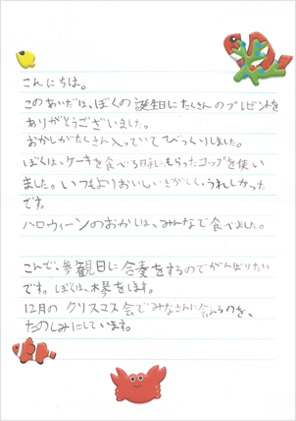 こんにちは。
このあいだは、ぼくの誕生日にたくさんのプレゼントを
ありがとうございました。
おかしがたくさん入っていてびっくりしました。
ぼくは、ケーキを食べる時にもらったコップを使い
ました。いつもよりおいしいきがして、うれしかった
です。
ハロウィーンのおかしは、みんなで食べました。
こんど、参観日に合奏をするのでがんばりたい
です。ぼくは、木琴をします。
12月のクリスマス会でみなさんに会えるのを、
たのしみにしています。